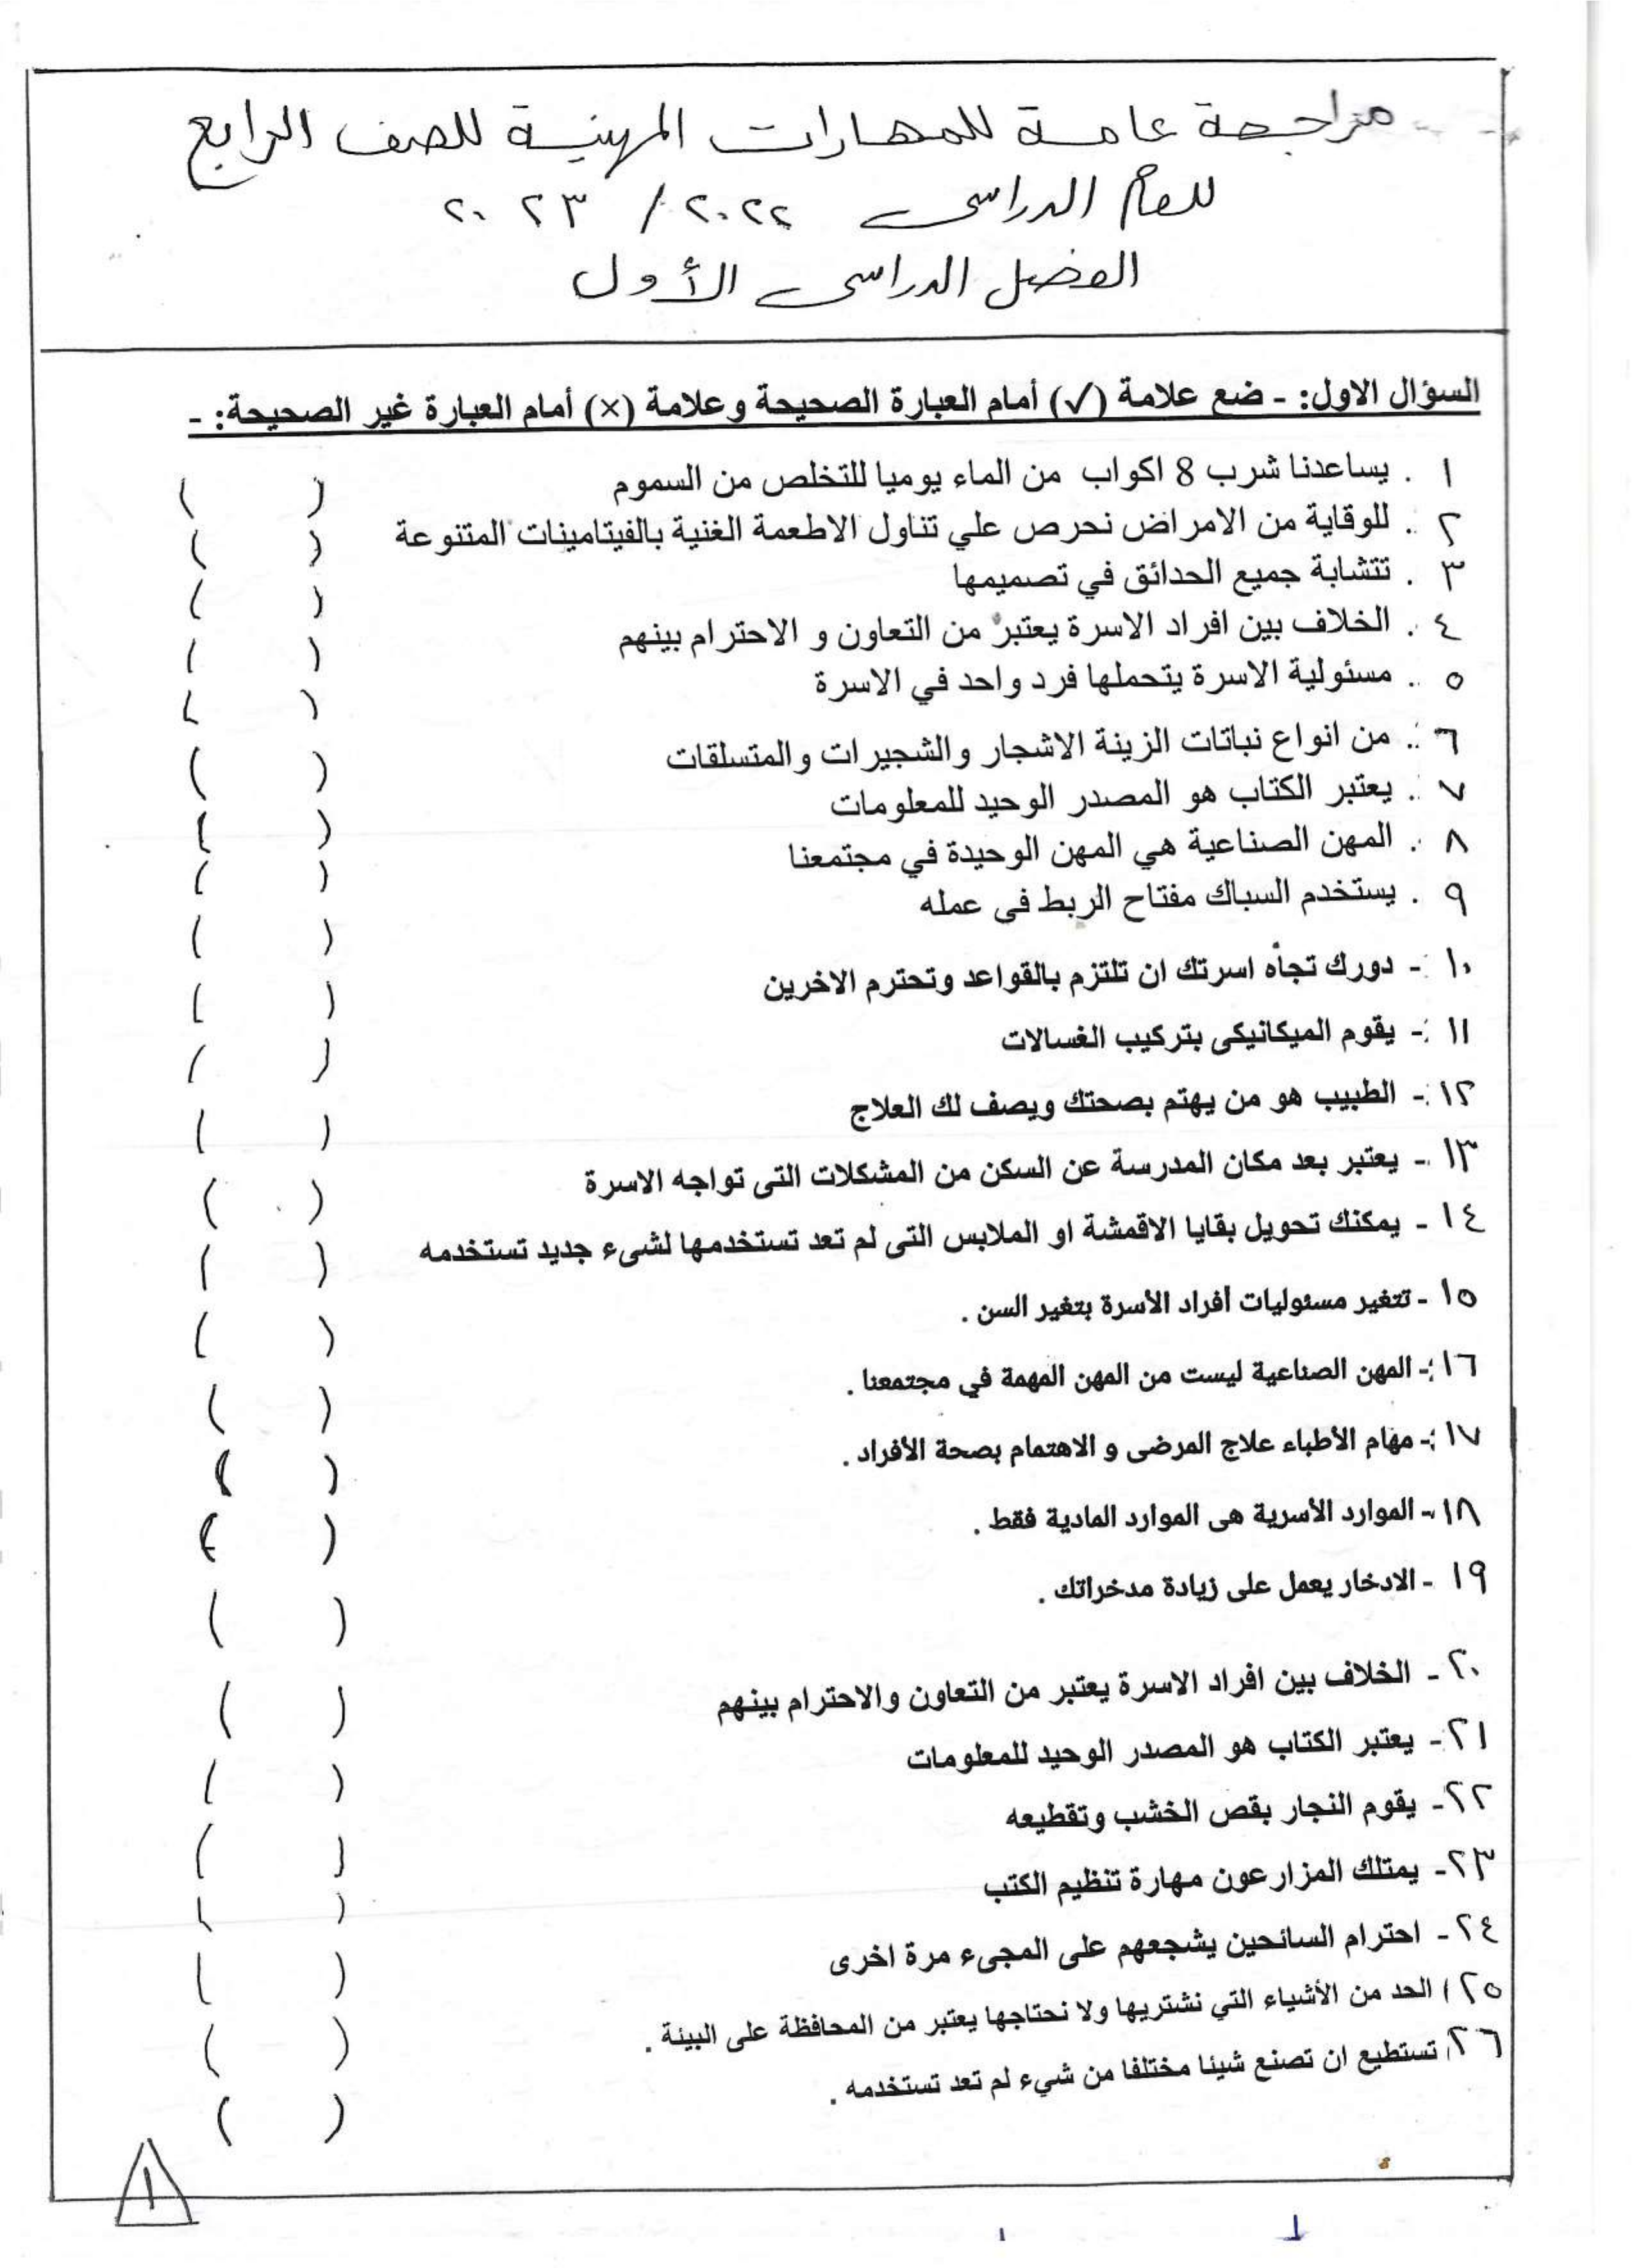 مراجعة عامة للمهارات المهنية للصف الرابع
للعام الدراسى ٢٠٢٢ / ٢٠٢٣
الفصل الدراسى الأول
السؤال الاول: - ضع علامة (√) أمام العبارة الصحيحة وعلامة (×) أمام العبارة غير الصحيحة: -
١ . يساعدنا شرب 8 اكواب من الماء يوميا للتخلص من السموم ( )
٢ . للوقاية من الامراض نحرص علي تناول الاطعمة الغنية بالفيتامينات المتنوعة ( )
٣ . تتشابة جميع الحدائق في تصميمها ( )
٤ . الخلاف بين افراد الاسرة يعتبر من التعاون و الاحترام بينهم ( )
٥ . مسئولية الاسرة يتحملها فرد واحد في الاسرة ( )
٦ . من انواع نباتات الزينة الاشجار والشجيرات والمتسلقات ( )
٧ . يعتبر الكتاب هو المصدر الوحيد للمعلومات ( )
٨ . المهن الصناعية هي المهن الوحيدة في مجتمعنا ( )
٩ . يستخدم السباك مفتاح الربط فى عمله ( )
١٠ - دورك تجاه اسرتك ان تلتزم بالقواعد وتحترم الاخرين ( )
١١ - يقوم الميكانيكى بتركيب الغسالات ( )
١٢ - الطبيب هو من يهتم بصحتك ويصف لك العلاج ( )
١٣ - يعتبر بعد مكان المدرسة عن السكن من المشكلات التى تواجه الاسرة ( )
١٤ - يمكنك تحويل بقايا الاقمشة او الملابس التى لم تعد تستخدمها لشىء جديد تستخدمه ( )
١٥ - تتغير مسئوليات أفراد الأسرة بتغير السن . ( )
١٦ - المهن الصناعية ليست من المهن المهمة في مجتمعنا . ( )
١٧ - مهام الأطباء علاج المرضى و الاهتمام بصحة الأفراد . ( )
١٨ - الموارد الأسرية هى الموارد المادية فقط . ( )
١٩ - الادخار يعمل على زيادة مدخراتك . ( )
٢٠ - الخلاف بين افراد الاسرة يعتبر من التعاون والاحترام بينهم ( )
٢١ - يعتبر الكتاب هو المصدر الوحيد للمعلومات ( )
٢٢ - يقوم النجار بقص الخشب وتقطيعه ( )
٢٣ - يمتلك المزارعون مهارة تنظيم الكتب ( )
٢٤ - احترام السائحين يشجعهم على المجىء مرة اخرى ( )
٢٥ ) الحد من الأشياء التي نشتريها ولا نحتاجها يعتبر من المحافظة على البيئة . ( )
٢٦ تستطيع ان تصنع شيئا مختلفا من شيء لم تعد تستخدمه . ( )
١